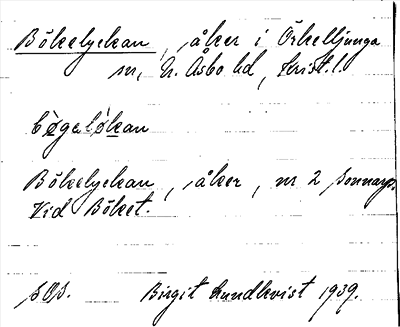 Bökelyckan, åker i Örkelljunga
sn, N. Åsbo hd, Krist. l.
bøgəløkan
Bökelyckan, åker, nr 2 Sonnarp.
Vid Böket.
SOS. Birgit Lundkvist 1939.